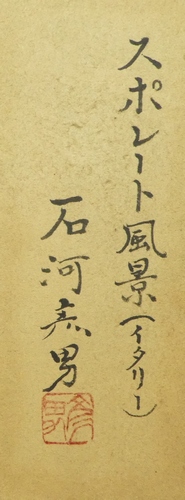 スポレート風景(イタリー)
石河彦男